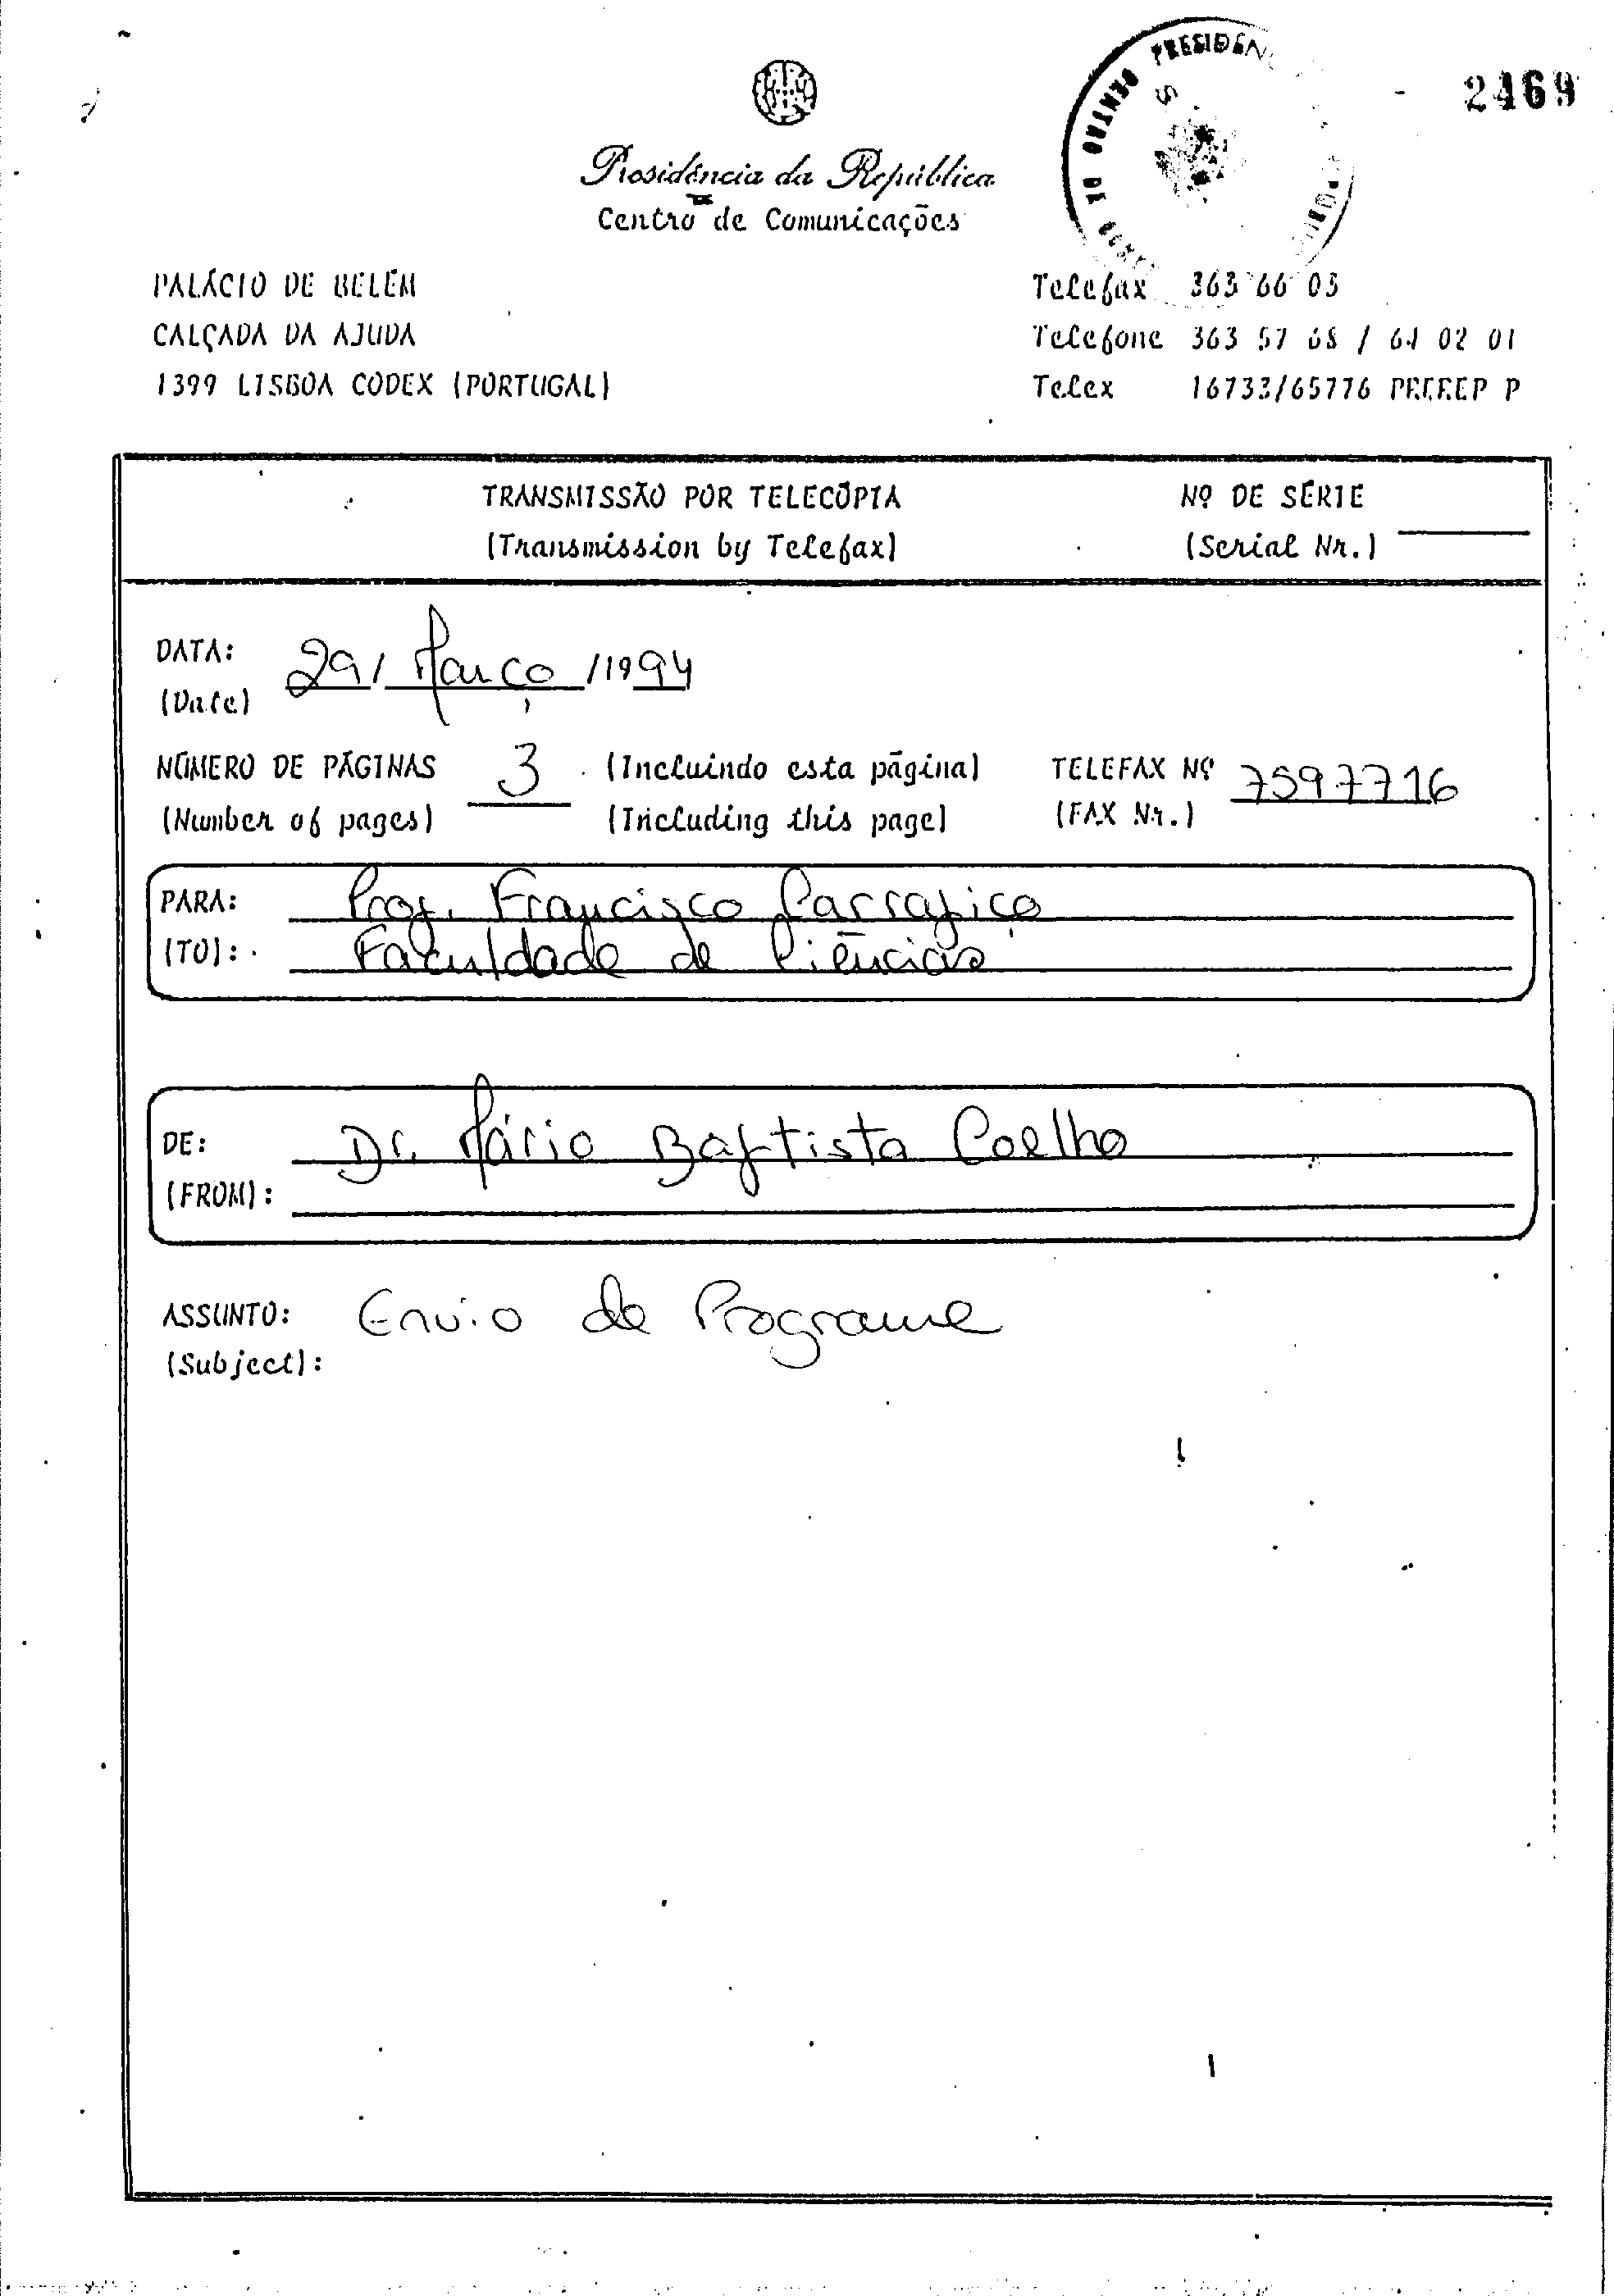 PRESIDÊN
CENTRO DE
2469
Presidência da República
Centro de Comunicações
PALÁCIO DE BELÉM
CALÇADA DA AJUDA
1399 LISBOA CODEX (PORTUGAL)
Telefax 363 66 03
Telefone 363 57 68 / 64 02 01
Telex 16733/65776 P
TRANSMISSÃO POR TELECÓPIA
(Transmission by Telefax)
Nº DE SÉRIE
(Serial Nr.)
DATA: 29 / Março / 1994
(Date)
NÚMERO DE PÁGINAS 3 (Incluindo esta página) TELEFAX Nº 7597716
(Number of pages) (Including this page) (FAX Nr.)
PARA: Prof. Francisco Carrapiço
(TO): Faculdade de Ciências
DE: Dr. Mário Baptista Coelho
(FROM):
ASSUNTO: Envio de Programa
(Subject):